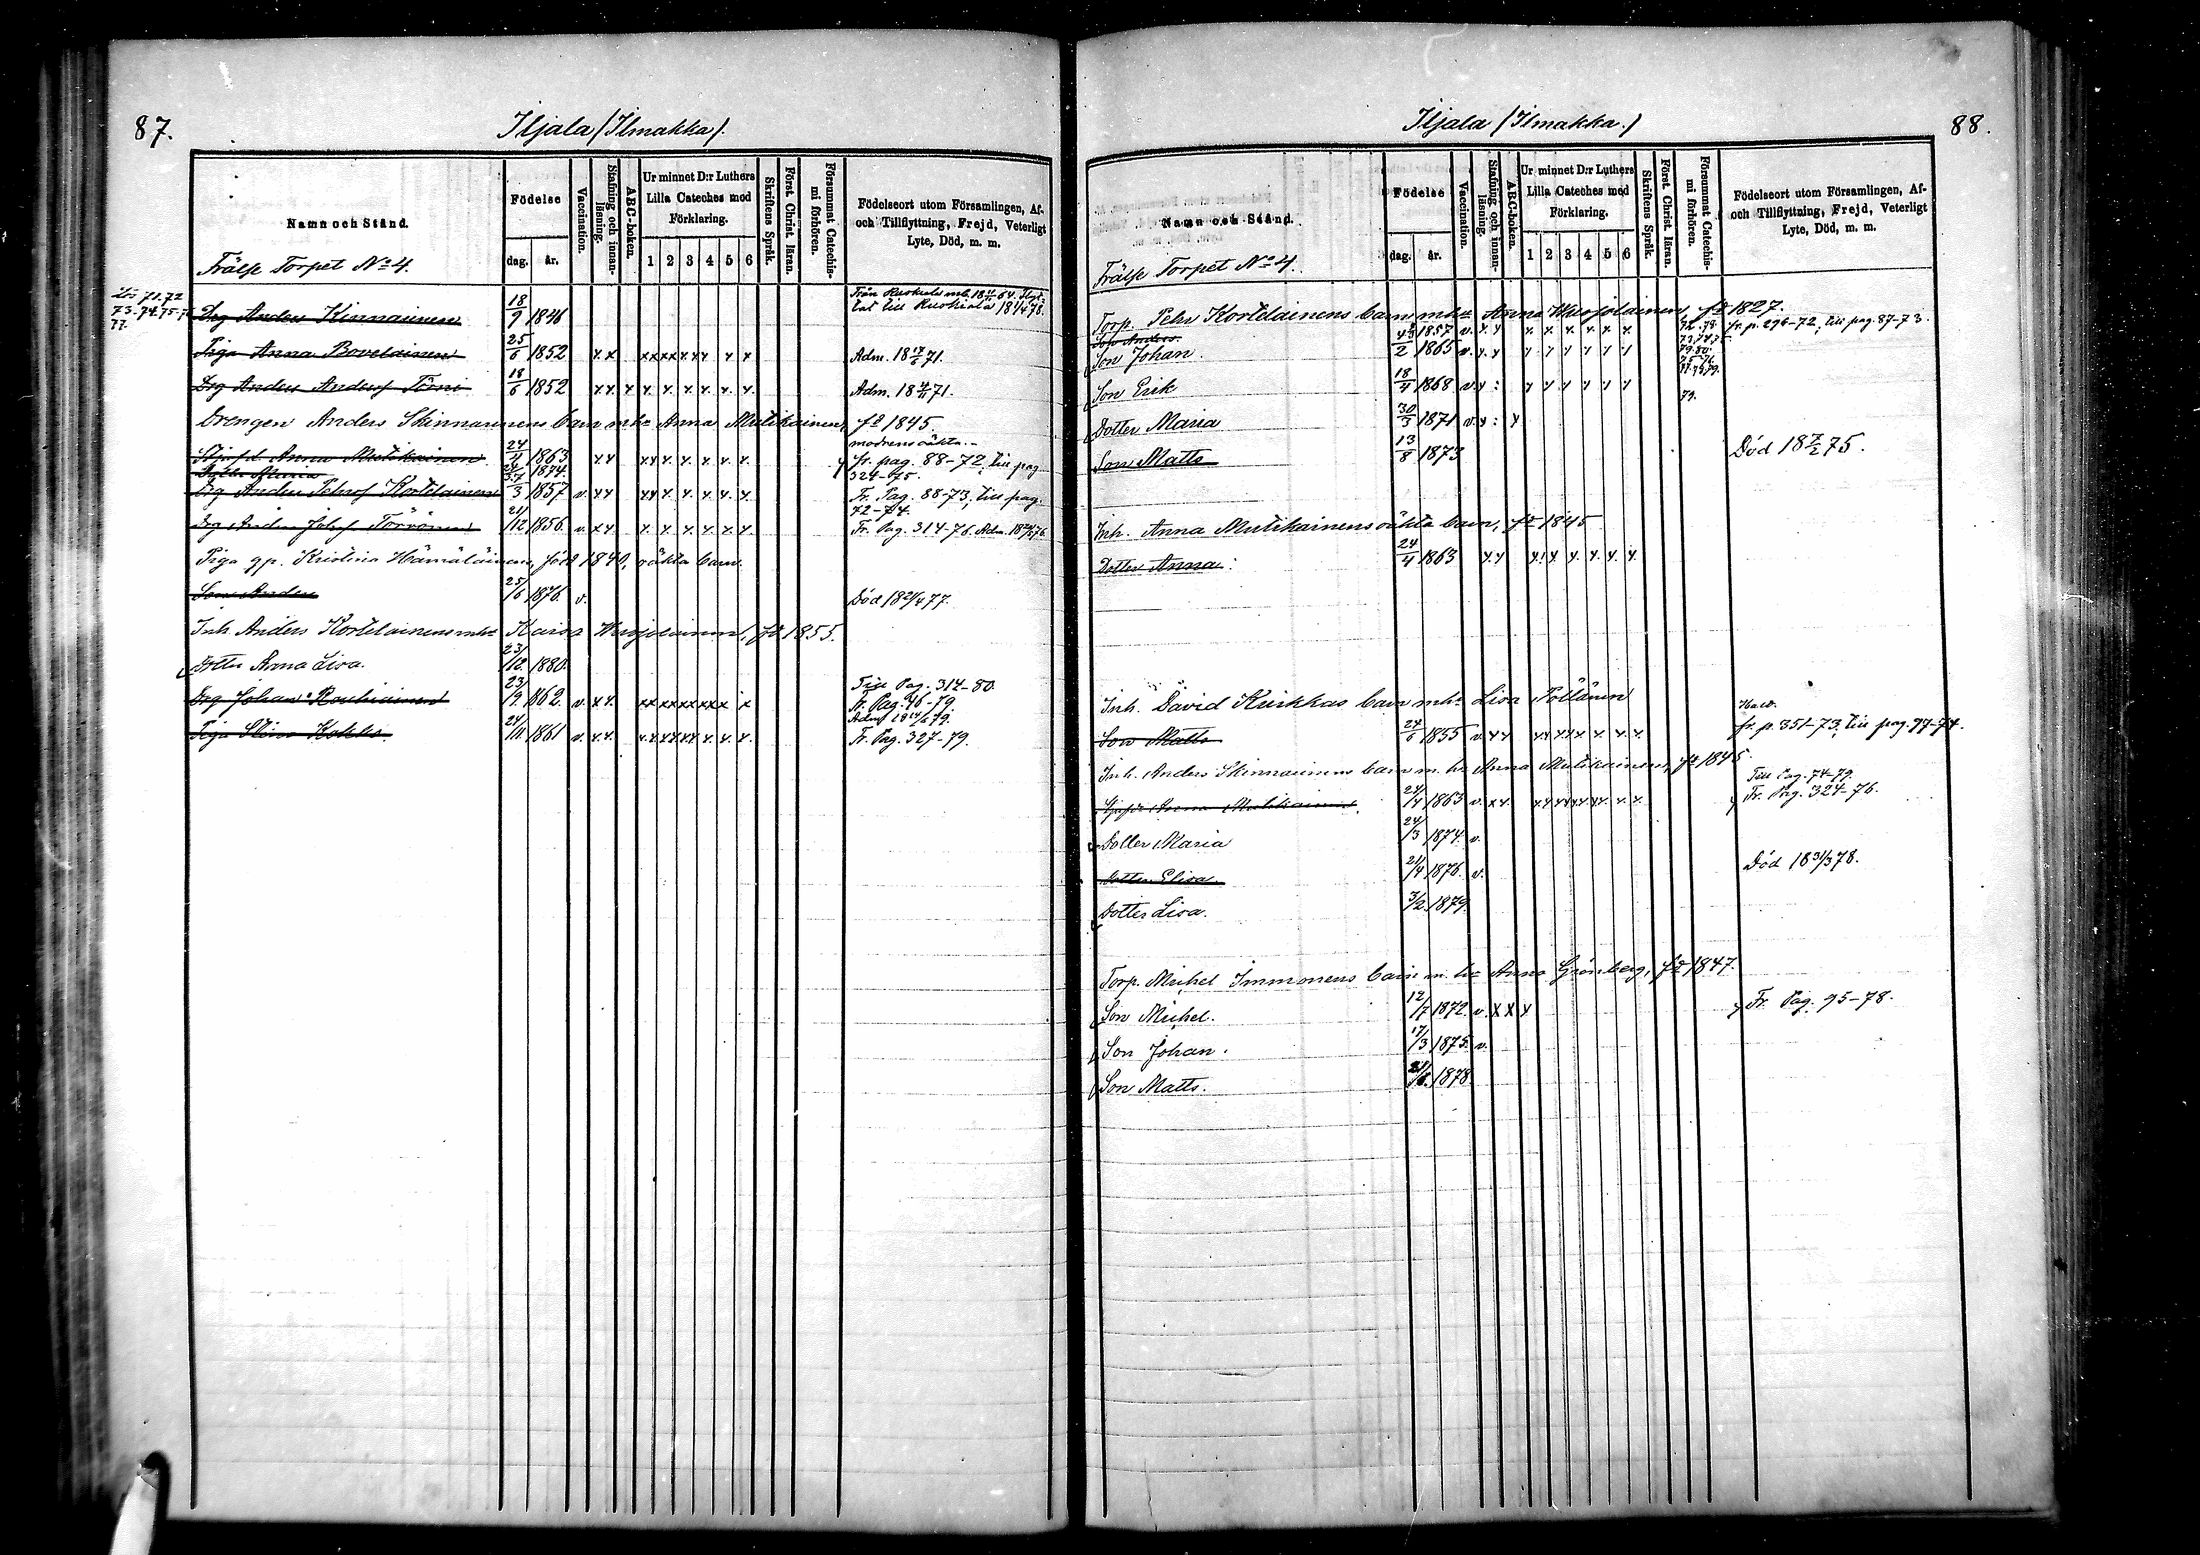 87.
Iljala (Ilmakka).
Namn och Stånd.
Födelse
dag. år.
Vaccination.
Stafning och innan-
läsning.
ABC-boken.
Ur minnet D:r Luthers
Lilla Cateches med
Förklaring.
1 2 3 4 5 6
Skriftens Språk.
Först. Christ. läran.
Försummat Catechis-
mi förhören.
Födelseort utom Församlingen, Af-
och Tillflyttning, Frejd, Veterligt
Lyte, Död, m. m.
Frälse Torpet No 4.
71. 72
73. 74. 75. 76
77.
Drg Anders Kinnarinen 18/9 1846
Från Ruskiala
till Ruskiala
Piga Anna Bovelainen 25/6 1852 Adm. 71.
Drg Anders Andersf Törni 18/6 1852 Adm. 71.
Drengen Anders Skinnarinens barn mhu Anna Mutikainen, fd 1845.
modrens oäkta.
Anna Mutikainen 24/4 1863 fr. pag. 88-72, till pag
324-75.
Maria 24/3 1874
Drg Anders Petersf Kortelainen 1857 v. Fr. Pag. 88-73, till pag.
72-74.
Drg Anders Johsf Törrönen 21/12 1856. v. Fr. Pag. 314-76. Adm.
Piga gp. Kristina Hämäläinens, född 1840, oäkta barn.
Son Anders 25/6 1876. v. Död 77.
Inh. Anders Kortelainens mhu Kaisa fd 1855.
Dotter Anna Lisa. 23/12 1880.
Till Pag. 314-80.
Drg Johan Rouhiainen 23/9 1862. v. Fr. Pag. 46-79.
Adm 79.
Piga Stina 24/11 1861 v. Fr. Pag. 327-79.
Iljala (Ilmakka.)
88.
Namn och Stånd.
Födelse
dag. år.
Vaccination.
Stafning och innan-
läsning.
ABC-boken.
Ur minnet D:r Luthers
Lilla Cateches med
Förklaring.
1 2 3 4 5 6
Skriftens Språk.
Först. Christ. läran.
Försummat Catechis-
mi förhören.
Födelseort utom Församlingen, Af-
och Tillflyttning, Frejd, Veterligt
Lyte, Död, m. m.
Frälse Torpet No 4.
Torp. Pehr Kortelainens barn mhu Anna fd 1827.
Son Anders. 1857 v. fr. p. 296-72, till pag. 87-73.
Son Johan. 1865 v.
Son Erik 18/4 1868 v. 79.
Dotter Maria 30/3 1871 v.
Son Matts 13/8 1873 Död 75.
Inh. Anna Mutikainens oäkta barn, fd 1845
Dotter Anna. 24/4 1863
Inh. David Kuikkas barn mhu Lisa Pöllänen
Son Matts 24/6 1855 v. fr. p. 351-73, till pag. 77-74.
Inh. Anders Skinnarinens barn m. hu Anna Mutikainen, fd 1845
Till Pag. 74-79.
Anna Mutikainen 24/4 1863 v. Fr. Pag. 324-76.
Dotter Maria 24/3 1874. v.
Dotter Elisa. 21/4 1876. v. Död 18 31/3 78.
Dotter Lisa. 3/2 1879.
Torp. Michel Immonens barn m. hu Anna Grönberg, fd 1847.
Son Michel. 12/7 1872. v. Fr. Pag. 95-78.
Son Johan. 17/3 1875. v.
Son Matts. 1878.